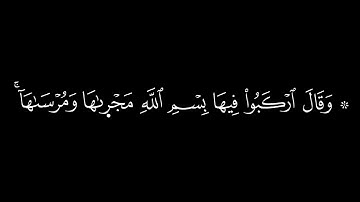 ۞ وَقَالَ ٱرۡكَبُواْ فِيهَا بِسۡمِ ٱللَّهِ مَجۡرٜىٰهَا وَمُرۡسَىٰهَآۚ